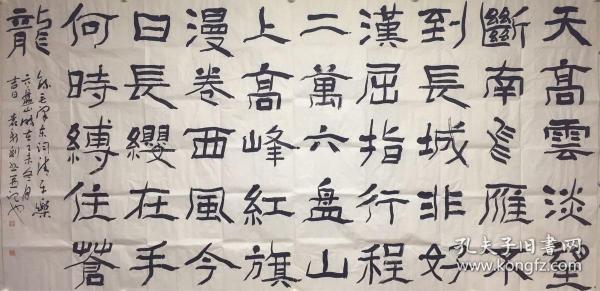 天高雲淡望
斷南飛雁不
到長城非好
漢屈指行程
二萬六盤山
上高峰紅旗
漫卷西風今
日長纓在手
何時縛住蒼
龍
錄毛澤東詞清平樂
六盤山時在乙未冬月
吉日
孔夫子旧书网
www.kongfz.com